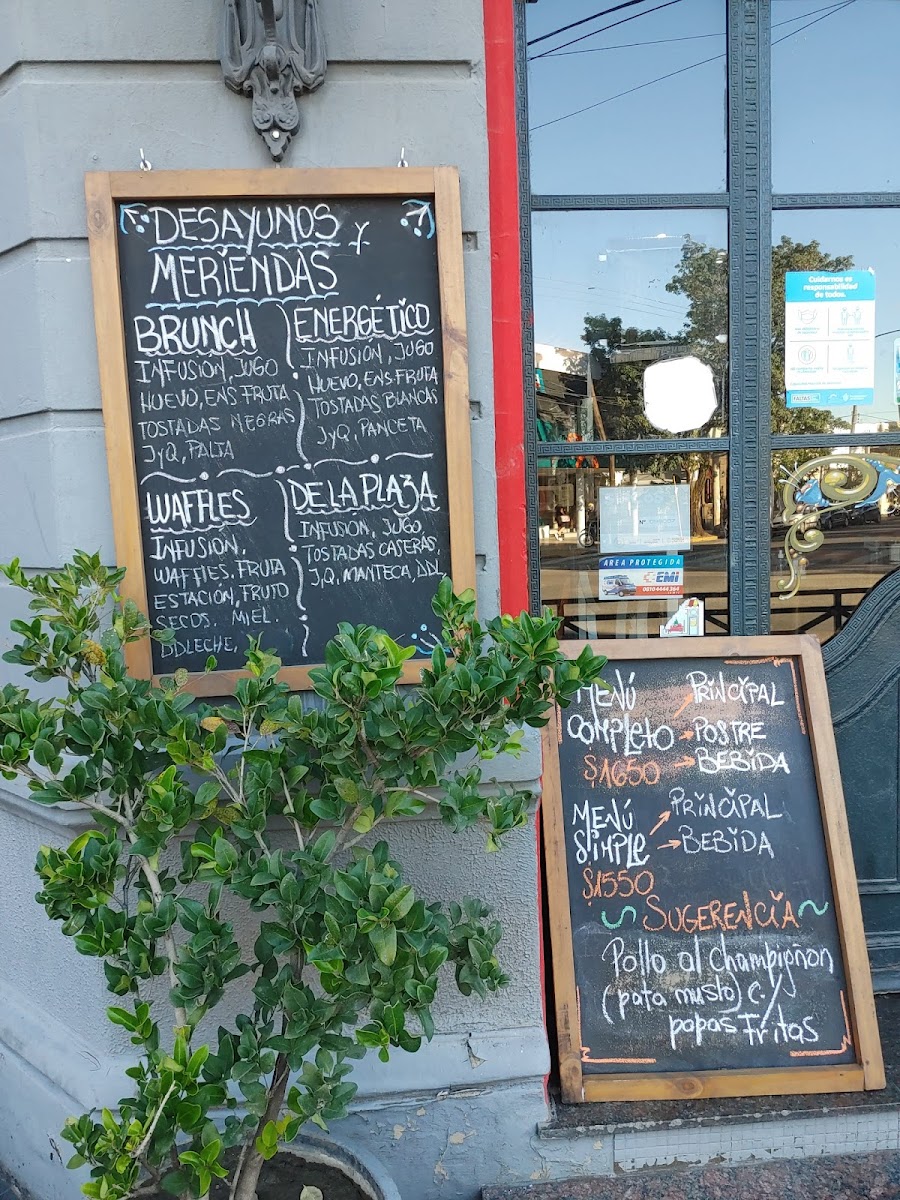 DESAYUNOS Y
MERIENDAS
BRUNCH
INFUSIÓN, JUGO
HUEVO, ENS FRUTA
TOSTADAS NEGRAS
JyQ, PALTA
ENERGÉTICO
INFUSIÓN, JUGO
HUEVO, ENS FRUTA
TOSTADAS BLANCAS
JyQ, PANCETA
WAFFLES
INFUSIÓN.
WAFFLES. FRUTA
ESTACIÓN, FRUTO
SECOS. MIEL.
DDLECHE,
DE LA PLAZA
INFUSIÓN, JUGO,
TOSTADAS CASERAS,
J,Q, MANTECA, DDL
Cuidarnos es
responsabilidad
de todos.
AREA PROTEGIDA
EMI
0810 4444 364
MENÚ
COMPLETO
$1650
PRINCIPAL
POSTRE
BEBIDA
MENÚ
SIMPLE
$1550
PRINCIPAL
BEBIDA
SUGERENCIA
Pollo al champigñon
(pata muslo) c/
papas Fritas